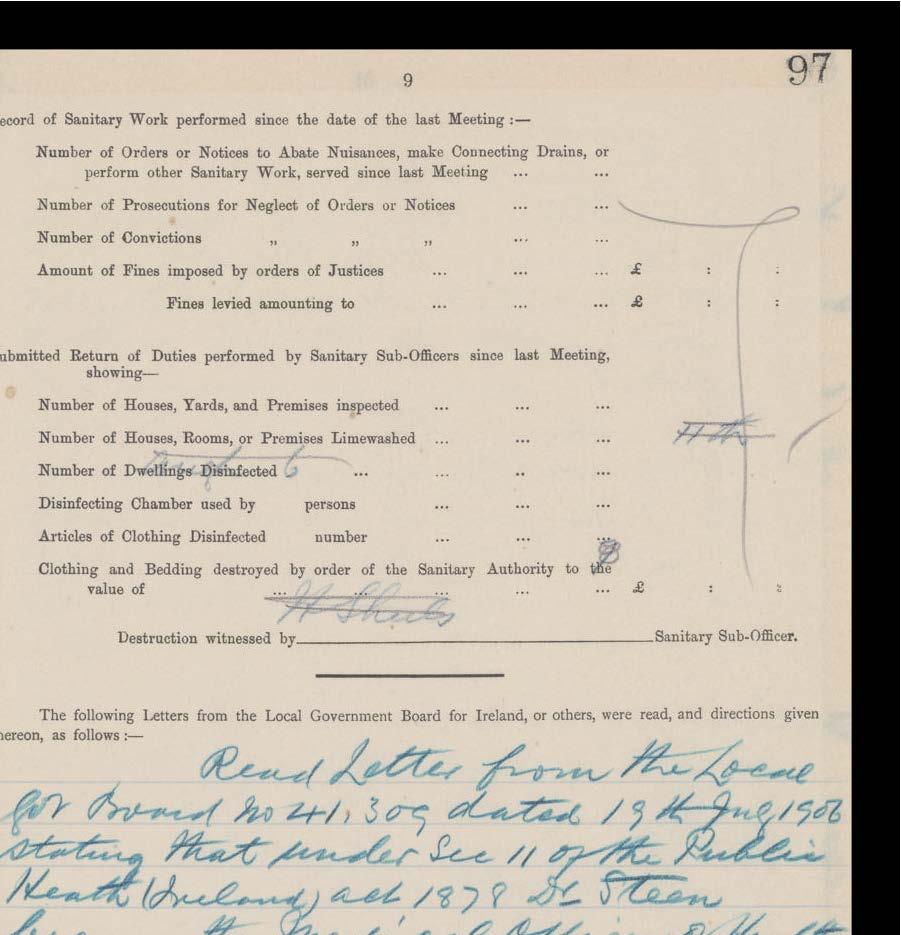 9
97
ecord of Sanitary Work performed since the date of the last Meeting :—
Number of Orders or Notices to Abate Nuisances, make Connecting Drains, or
perform other Sanitary Work, served since last Meeting ... ...
Number of Prosecutions for Neglect of Orders or Notices ... ...
Number of Convictions „ „ „ ... ...
Amount of Fines imposed by orders of Justices ... ... ... £ : :
Fines levied amounting to ... ... ... £ : :
ubmitted Return of Duties performed by Sanitary Sub-Officers since last Meeting,
showing—
Number of Houses, Yards, and Premises inspected ... ... ...
Number of Houses, Rooms, or Premises Limewashed ... ... ...
Number of Dwellings Disinfected 6 ... ... .. ...
Disinfecting Chamber used by persons ... ... ...
Articles of Clothing Disinfected number ... ... ...
Clothing and Bedding destroyed by order of the Sanitary Authority to the
value of ... ... ... ... ... £ : :
Destruction witnessed by Sanitary Sub-Officer.
The following Letters from the Local Government Board for Ireland, or others, were read, and directions given
hereon, as follows :—
Read Letter from the Local
Gov Board No 41,309 dated 19th July 1906
stating that under Sec 11 of the Public
Heath (Ireland) act 1878 Dr Steen